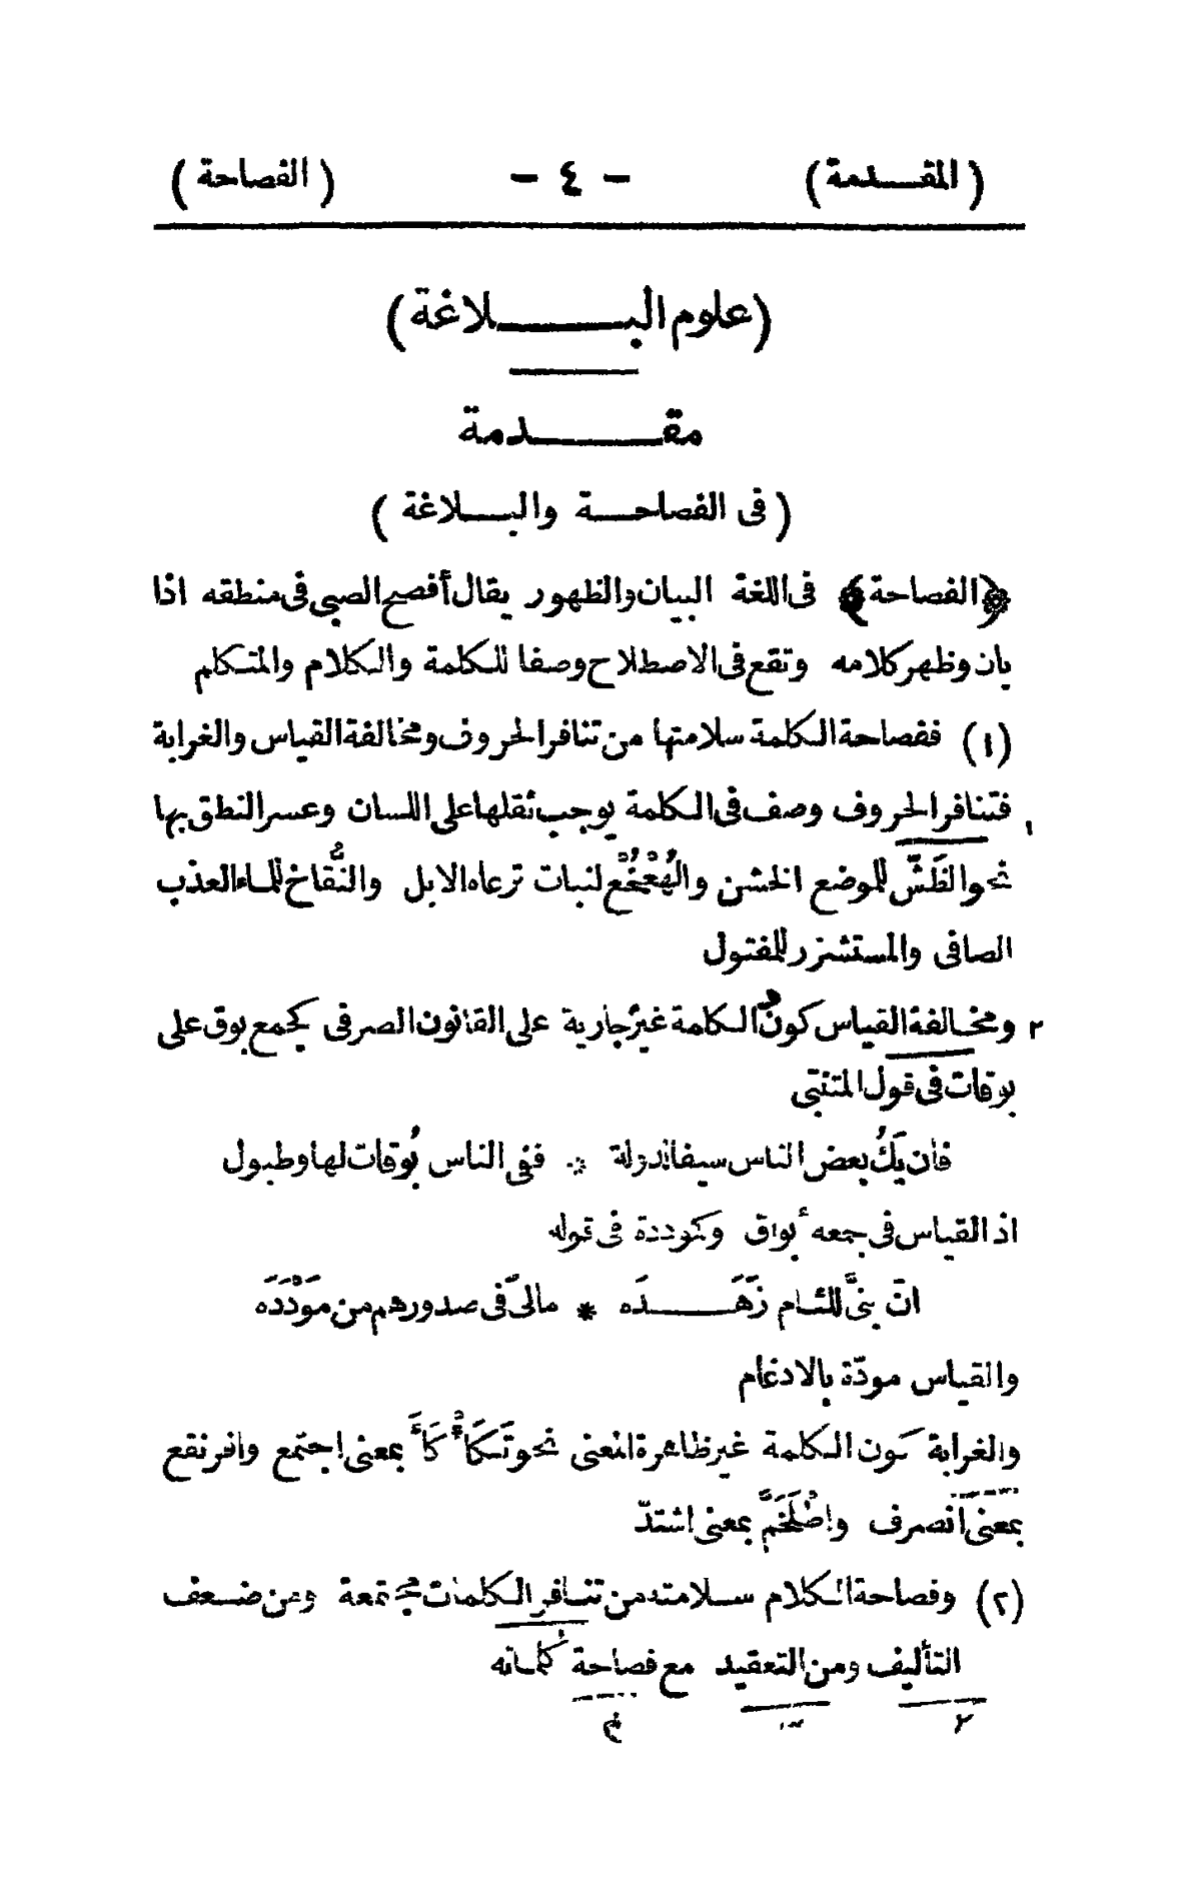 ( المقدمة ) - ٤ - ( الفصاحة )
( علوم البلاغة )
مقدمة
( فى الفصاحة والبلاغة )
﴿الفصاحة﴾ فى اللغة البيان والظهور يقال أفصح الصبي فى منطقه اذا
بان وظهر كلامه وتقع فى الاصطلاح وصفا للكلمة والكلام والمتكلم
(١) ففصاحة الكلمة سلامتها من تنافر الحروف ومخالفة القياس والغرابة
١ فتنافر الحروف وصف فى الكلمة يوجب ثقلها على اللسان وعسر النطق بها
نحو الظَشّ للموضع الخشن والهُعْخُع لنبات ترعاه الابل والنُّقاخ للماء العذب
الصافى والمستشزر للمفتول
٢ ومخالفة القياس كونُ الكلمة غيرُ جارية على القانون الصرفى كجمع بوق على
بوقات فى قول المتنبى
فان يَكُ بعض الناس سيفا لدولة ۞ ففى الناس بُوقات لها وطبول
اذ القياس فى جمعه أبواق وكموددة فى قوله
انّ بنىَّ للئام زَهَدَه * مالىّ فى صدورهم من مَوْدَدَه
والقياس مودّة بالادغام
والغرابة كون الكلمة غير ظاهرة المعنى نحو تَكَأْكَأَ بمعنى اجتمع وافرنقع
بمعنى انصرف واطْلَخَمَّ بمعنى اشتدّ
(٢) وفصاحة الكلام سلامته من تنافر الكلمات مجتمعة ومن ضعف
التأليف ومن التعقيد مع فصاحة كلماته
٢ ٣ ٤